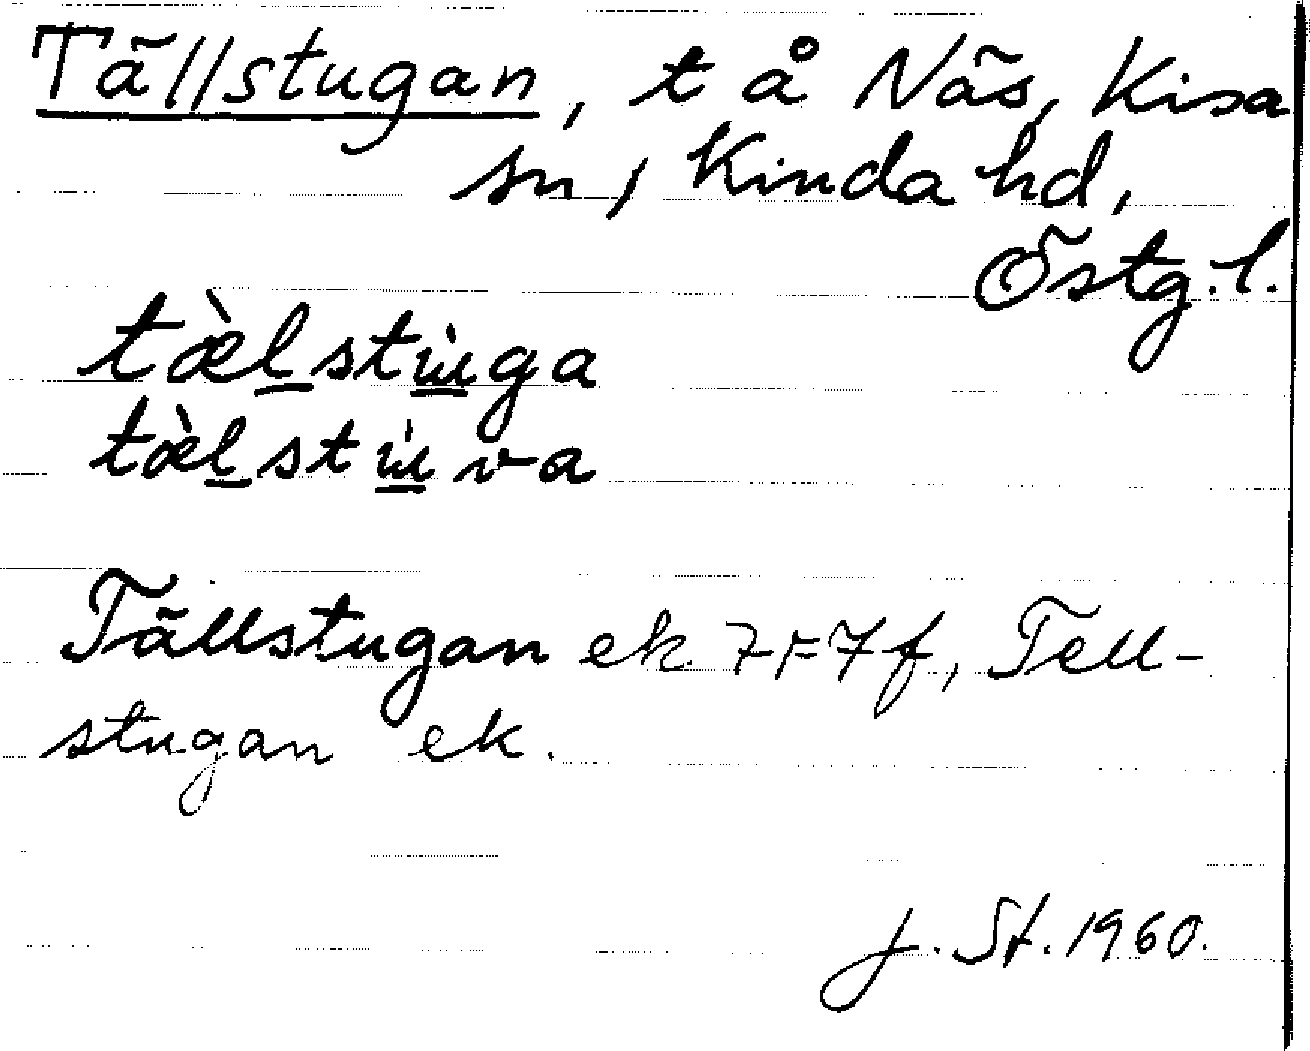 Tällstugan, t å Näs, Kisa
sn, Kinda hd,
Östg.l.
tæ̀l̲stu̲̇ga
tæ̀l̲stu̲̇va
Tällstugan ek 7F7f, Tell-
stugan ek.
J. St. 1960.